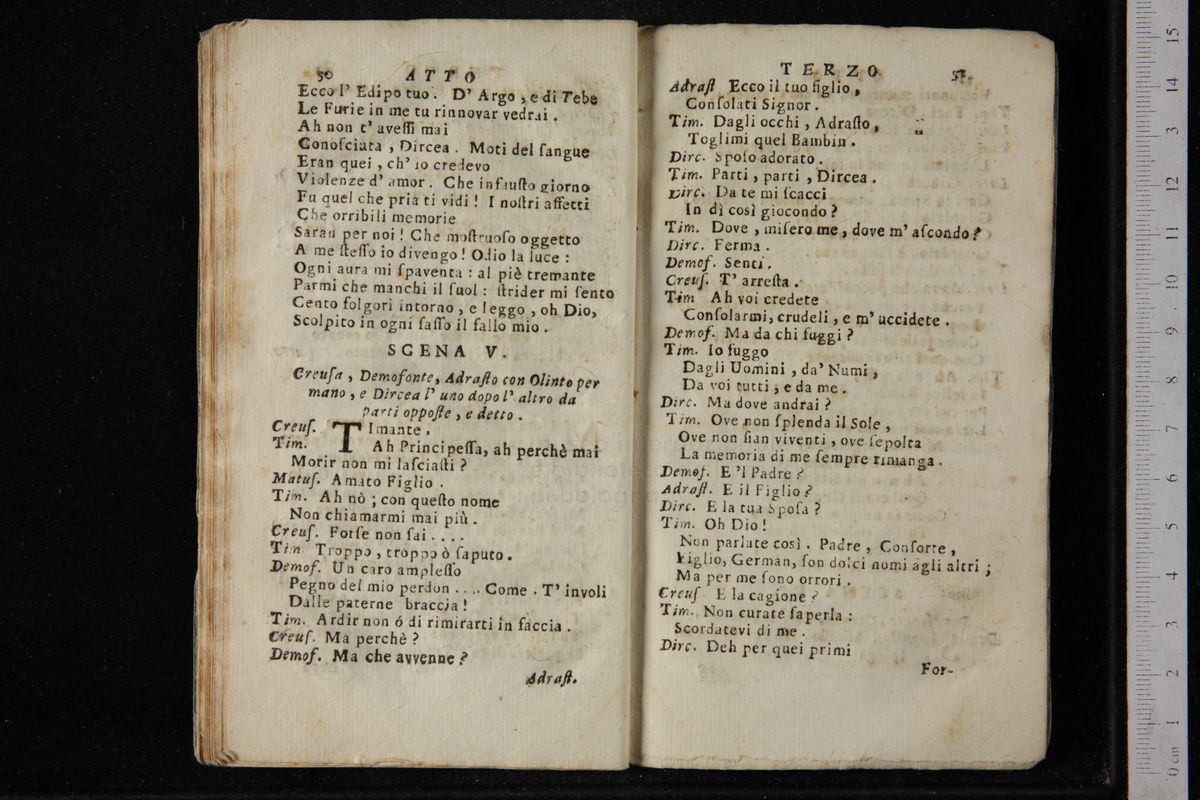 50 ATTO
Ecco l' Edipo tuo. D' Argo, e di Tebe
Le Furie in me tu rinnovar vedrai.
Ah non t' aveſſi mai
Conoſciuta, Dircea. Moti del ſangue
Eran quei, ch' io credevo
Violenze d' amor. Che infauſto giorno
Fu quel che pria ti vidi! I noſtri affetti
Che orribili memorie
Saran per noi! Che moſtruoſo oggetto
A me ſteſſo io divengo! Odio la luce:
Ogni aura mi ſpaventa: al piè tremante
Parmi che manchi il ſuol: ſtrider mi ſento
Cento folgori intorno, e leggo, oh Dio,
Scolpito in ogni ſaſſo il fallo mio.
SCENA V.
Creuſa, Demofonte, Adraſto con Olinto per
mano, e Dircea l' uno dopo l' altro da
parti oppoſte, e detto.
Creuſ. TImante.
Tim. Ah Principeſſa, ah perchè mai
Morir non mi laſciaſti?
Matuſ. Amato Figlio.
Tim. Ah nò; con queſto nome
Non chiamarmi mai più.
Creuſ. Forſe non ſai....
Tim Troppo, troppo ò ſaputo.
Demoſ. Un caro ampleſſo
Pegno del mio perdon.... Come. T' involi
Dalle paterne braccia!
Tim. Ardir non ó di rimirarti in faccia.
Creuſ. Ma perchè?
Demoſ. Ma che avvenne?
Adraſt.
TERZO 51
Adraſt Ecco il tuo figlio,
Conſolati Signor.
Tim. Dagli occhi, Adraſto,
Toglimi quel Bambin.
Dirc. Spoſo adorato.
Tim. Parti, parti, Dircea.
Dirc. Da te mi ſcacci
In dì così giocondo?
Tim. Dove, miſero me, dove m' aſcondo?
Dirc. Ferma.
Demoſ. Senti.
Creuſ. T' arreſta.
Tim Ah voi credete
Conſolarmi, crudeli, e m' uccidete.
Demoſ. Ma da chi fuggi?
Tim. Io fuggo
Dagli Uomini, da' Numi,
Da voi tutti, e da me.
Dirc. Ma dove andrai?
Tim. Ove non ſplenda il Sole,
Ove non ſian viventi, ove ſepolta
La memoria di me ſempre rimanga.
Demoſ. E 'l Padre?
Adraſt. E il Figlio?
Dirc. E la tua Spoſa?
Tim. Oh Dio!
Non parlate così. Padre, Conſorte,
Figlio, German, ſon dolci nomi agli altri;
Ma per me ſono orrori.
Creuſ E la cagione?
Tim. Non curate ſaperla:
Scordatevi di me.
Dirc. Deh per quei primi
For-
15
14
13
12
11
10
9
8
7
6
5
4
3
2
1
0 cm